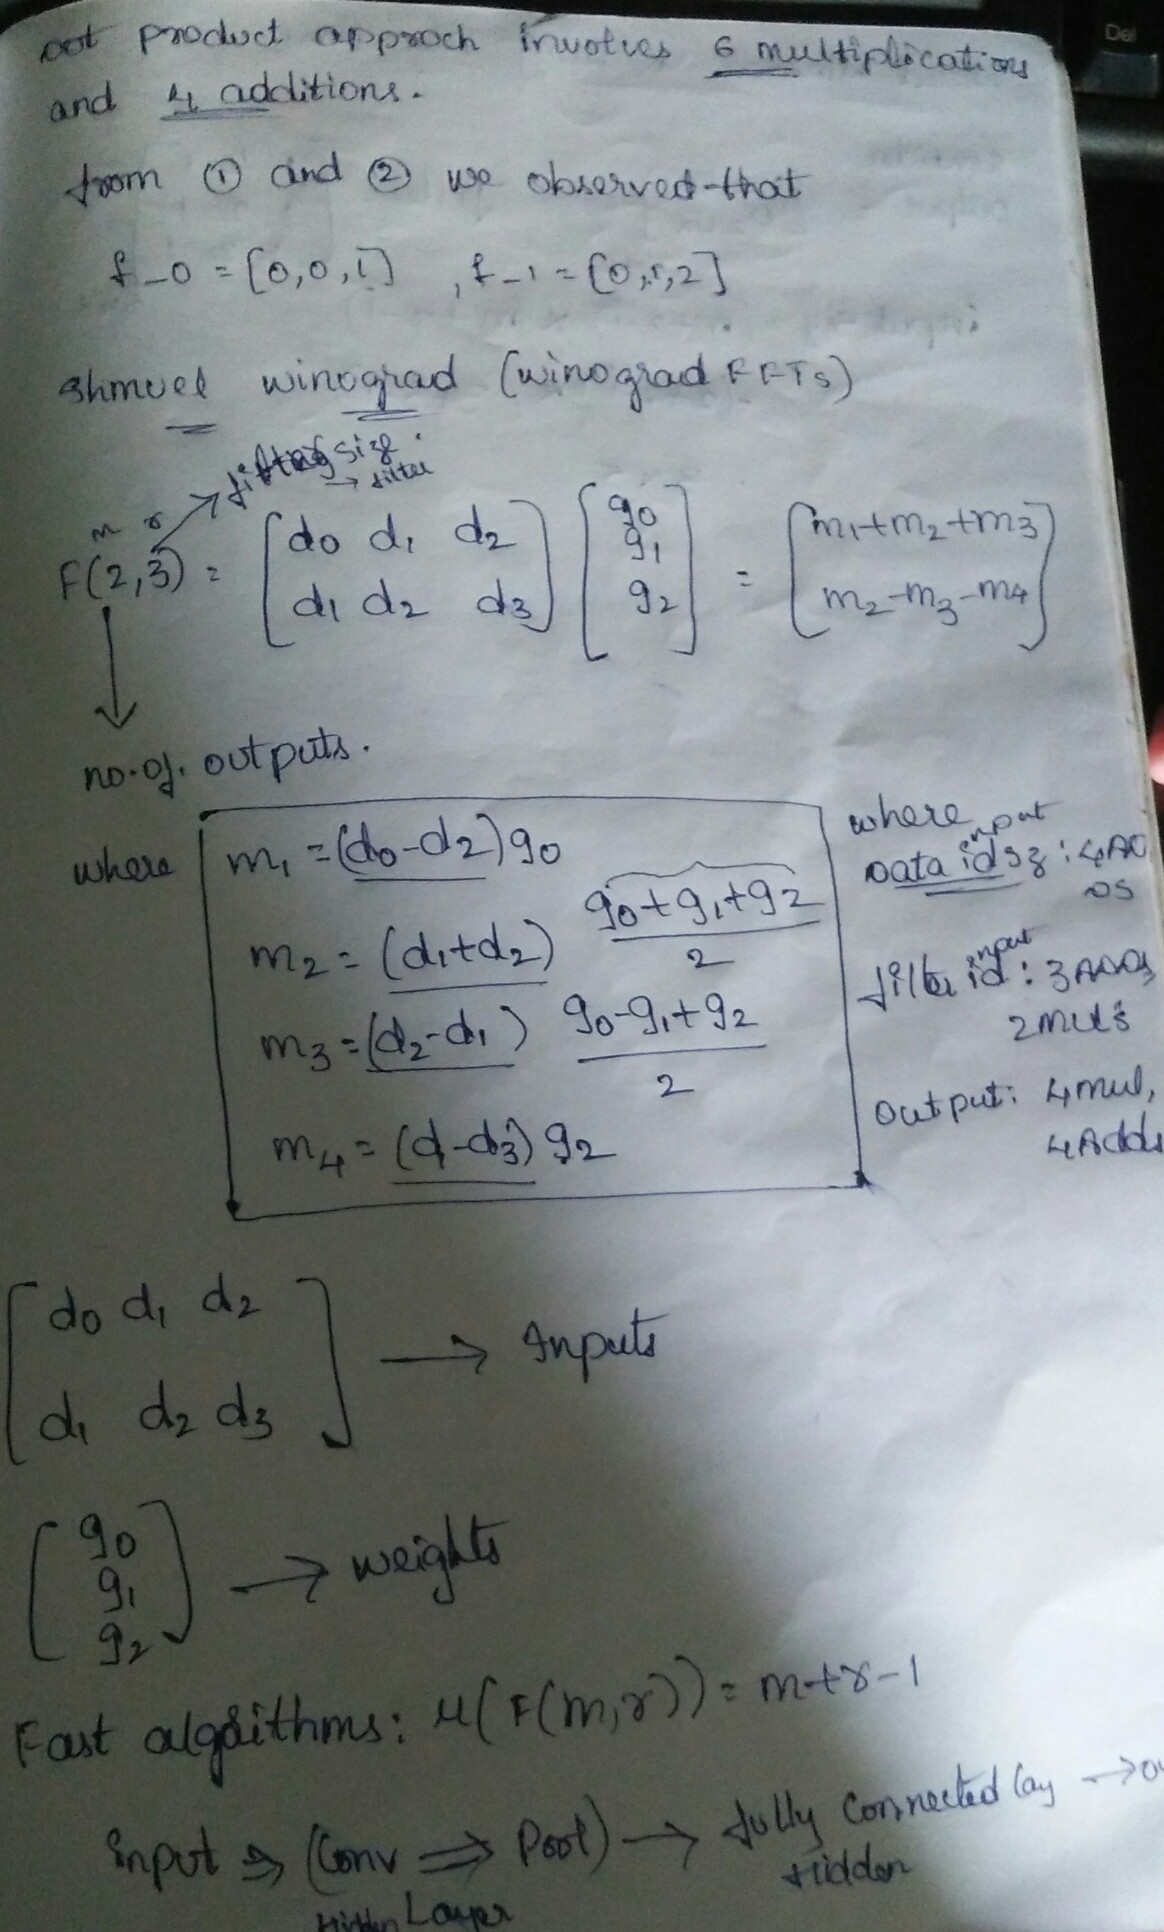 dot product approch involves 6 multiplications
and 4 additions.
from ① and ② we observed that
f_0 = [0,0,1] , f_1 = [0,1,2]
Shmuel winograd (winograd FFTs)
size
→ filter
m r
F(2,3) = [d0 d1 d2 d1 d2 d3] [g0 g1 g2] = [m1+m2+m3 m2-m3-m4]
no.of. outputs.
where
m1 = (d0-d2)g0
m2 = (d1+d2) g0+g1+g2 / 2
m3 = (d2-d1) g0-g1+g2 / 2
m4 = (d1-d3) g2
where
input
Data : 4AD
DS
input
filter id : 3ADDs
2muls
output: 4mul,
4Adds
d0 d1 d2
d1 d2 d3 → Inputs
g0
g1 → weights
g2
Fast algorithms: μ(F(m,r)) = m+r-1
Input ⇒ (Conv ⇒ Pool) → fully connected lay → ou
Hidden Layer Hidden